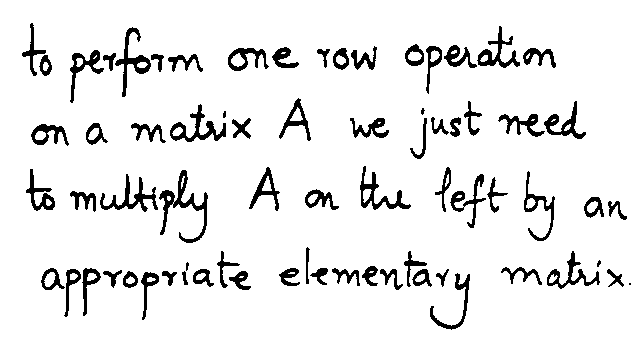 to perform one row operation
on a matrix A we just need
to multiply A on the left by an
appropriate elementary matrix.